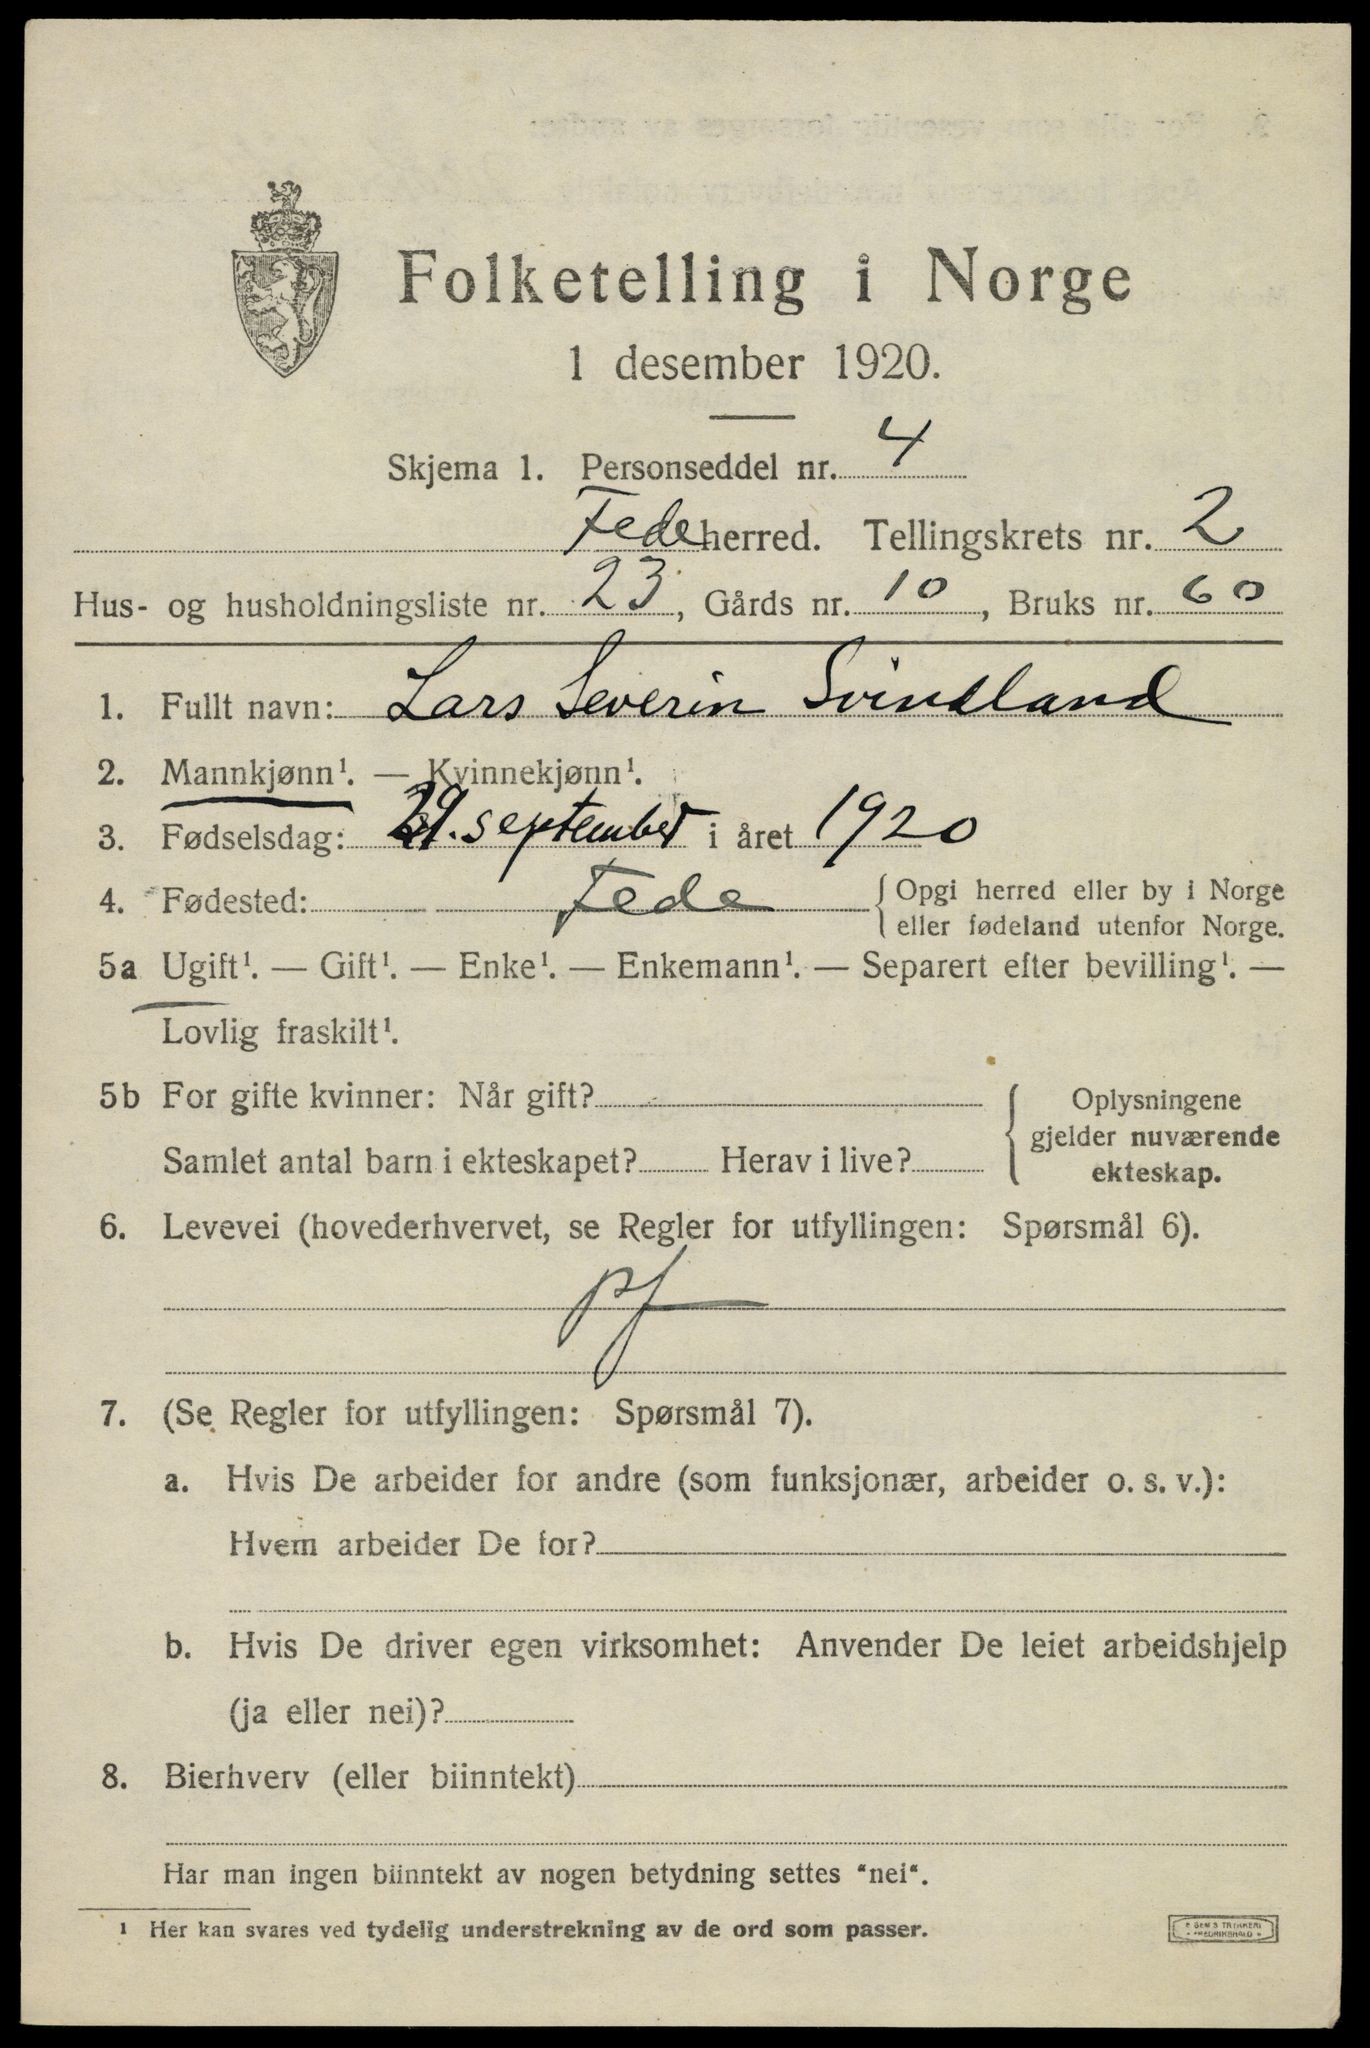 Folketelling i Norge
1 desember 1920.
Skjema 1. Personseddel nr. 4
Fede herred. Tellingskrets nr. 2
Hus- og husholdningsliste nr. 23, Gårds nr. 10, Bruks nr. 60
1. Fullt navn: Lars Severin Svindland
2. Mannkjønn¹. — Kvinnekjønn¹.
3. Fødselsdag: 29. september i året 1920
4. Fødested: Fede {Opgi herred eller by i Norge
eller fødeland utenfor Norge.
5a Ugift¹. — Gift¹. — Enke¹. — Enkemann¹. — Separert efter bevilling¹. —
Lovlig fraskilt¹.
5b For gifte kvinner: Når gift? Oplysningene
gjelder nuværende
Samlet antal barn i ekteskapet? Herav i live? ekteskap.
6. Levevei (hovederhvervet, se Regler for utfyllingen: Spørsmål 6).
pf
7. (Se Regler for utfyllingen: Spørsmål 7).
a. Hvis De arbeider for andre (som funksjonær, arbeider o. s. v.):
Hvem arbeider De for?
b. Hvis De driver egen virksomhet: Anvender De leiet arbeidshjelp
(ja eller nei)?
8. Bierhverv (eller biinntekt)
Har man ingen biinntekt av nogen betydning settes "nei".
¹ Her kan svares ved tydelig understrekning av de ord som passer.
FREDRIKSHALD